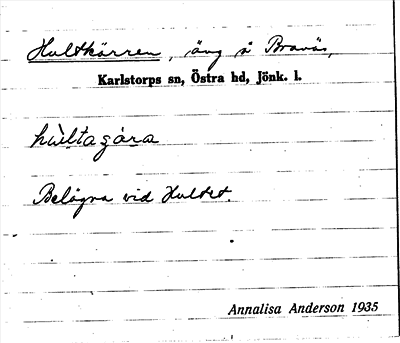 Hultkärren, äng å Bravös,
Karlstorps sn, Östra hd, Jönk. l.
hùltaçára
Belägna vid Hultet.
Annalisa Anderson 1935